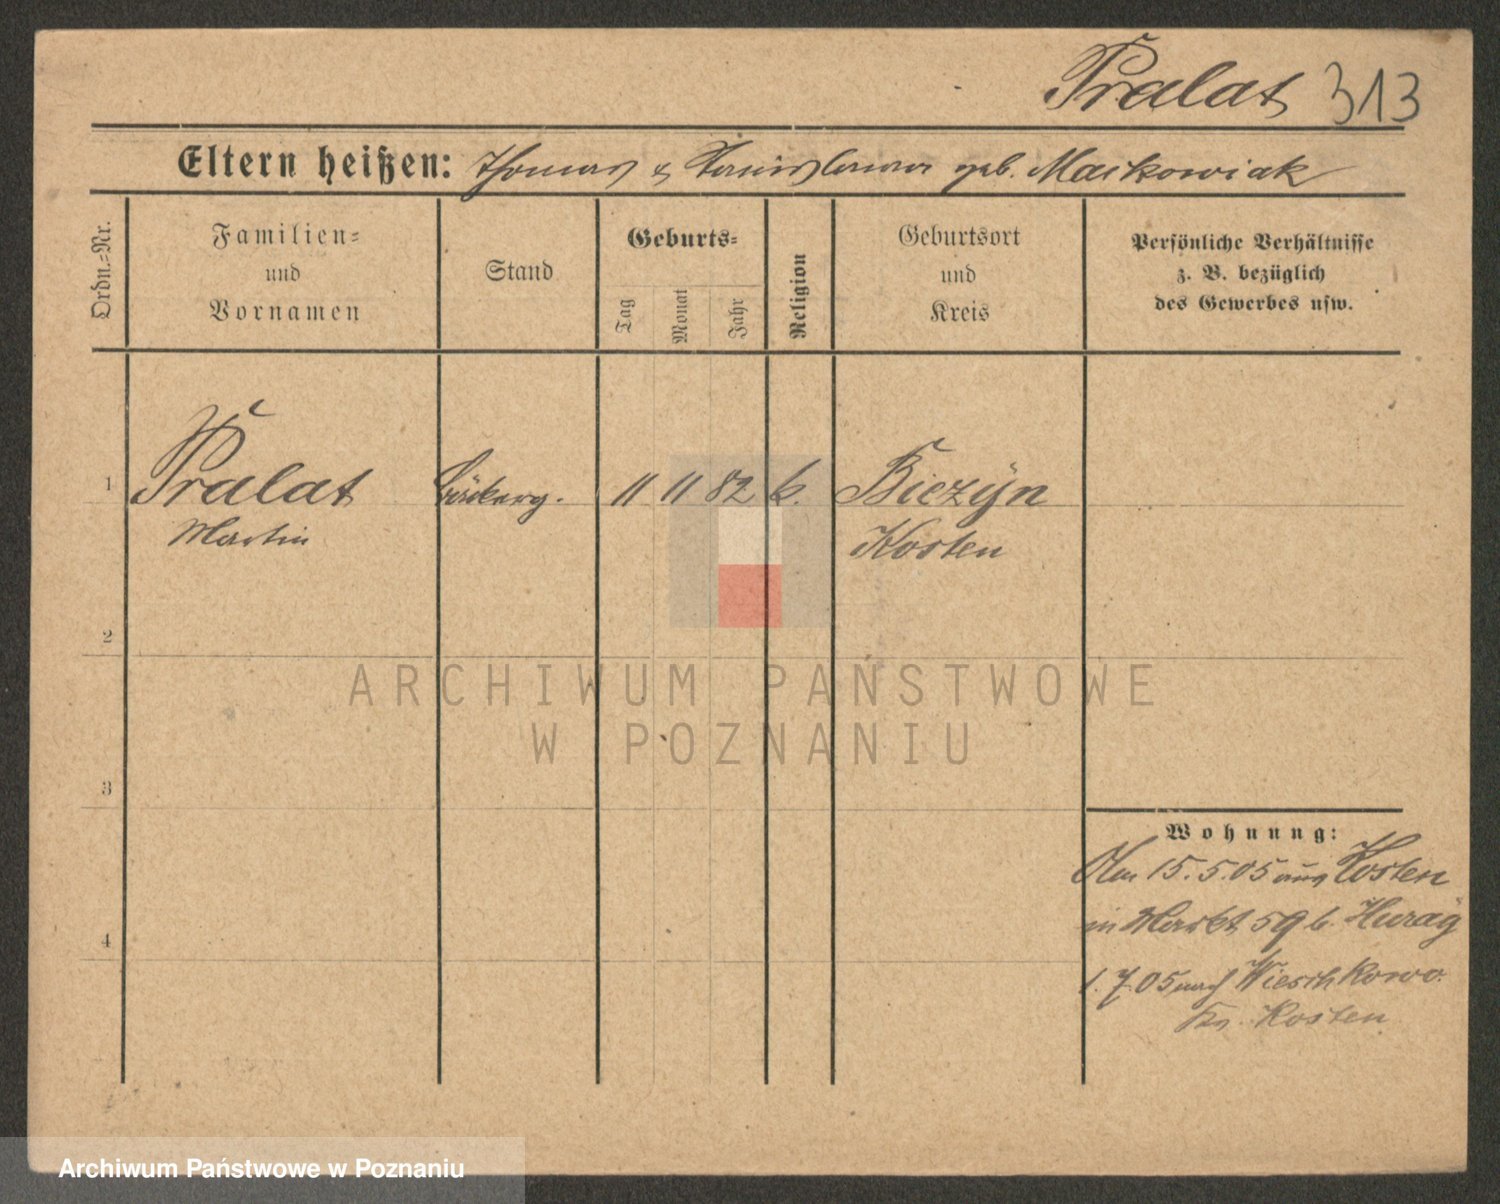 Pralat 313
Eltern heißen: Thomas & Stanislawa geb. Maikowiak
Ordn.-Nr.
Familien-
und
Vornamen
Stand
Geburts-
Tag
Monat
Jahr
Religion
Geburtsort
und
Kreis
Persönliche Verhältnisse
z. B. bezüglich
des Gewerbes usw.
1
Pralat
Martin
Bäckerg.
11 11 82
k.
Biezyn
Kosten
2
3
4
Wohnung:
15.5.05 aus Kosten
in Markt 59 b.
1.7.05 nach Wieschkowo
Kr. Kosten
ARCHIWUM PAŃSTWOWE
W POZNANIU
Archiwum Państwowe w Poznaniu